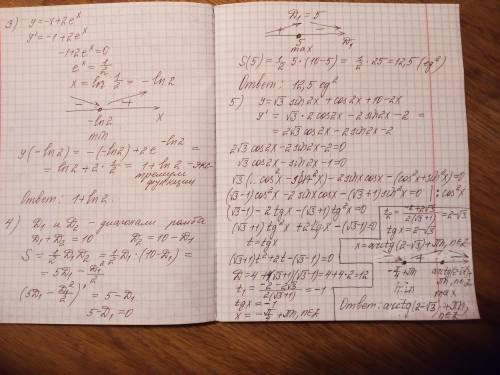 3) y=-x+2e^x
y'=-1+2e^x
-1+2e^x=0
e^x=1/2
x=ln 1/2=-ln2
- + x
-ln2
min
y(-ln2)=-(-ln2)+2e^(-ln2)=
=ln2+2·1/2=1+ln2 -экс-
тремум
функции
Ответ: 1+ln2
4) D₁ и D₂ - диагонали ромба
D₁+D₂=10 D₂=10-D₁
S=1/2 D₁D₂=1/2 D₁·(10-D₁)=
=5D₁-D₁²/2
(5D₁-D₁²/2)'=5-D₁
5-D₁=0
D₁=5
+ -
5 D₁
max
S(5)=1/2·5·(10-5)=1/2·25=12,5 (ед²)
Ответ: 12,5 ед²
5) y=√3 sin2x+cos2x+10-2x
y'=√3·2cos2x-2sin2x-2=
=2√3cos2x-2sin2x-2
2√3cos2x-2sin2x-2=0
√3cos2x-sin2x-1=0
√3(cos²x-sin²x)-2sinxcosx-(cos²x+sin²x)=0
(√3-1)cos²x-2sinxcosx-(√3+1)sin²x=0 |:cos²x
(√3-1)-2tgx-(√3+1)tg²x=0
(√3+1)tg²x+2tgx-(√3-1)=0
t=tgx
(√3+1)t²+2t-(√3-1)=0
D=4+4(√3+1)(√3-1)=4+4·2=12
t₁=(-2-2√3)/(2(√3+1))=-1
tgx=-1
x=-π/4+πn, n∈Z
t₂=(-2+2√3)/(2(√3+1))=2-√3
tgx=2-√3
x=arctg(2-√3)+πn, n∈Z
- + -
-π/4+πn arctg(2-√3)+
πn, n∈Z
min max
Ответ: arctg(2-√3)+πn,
n∈Z